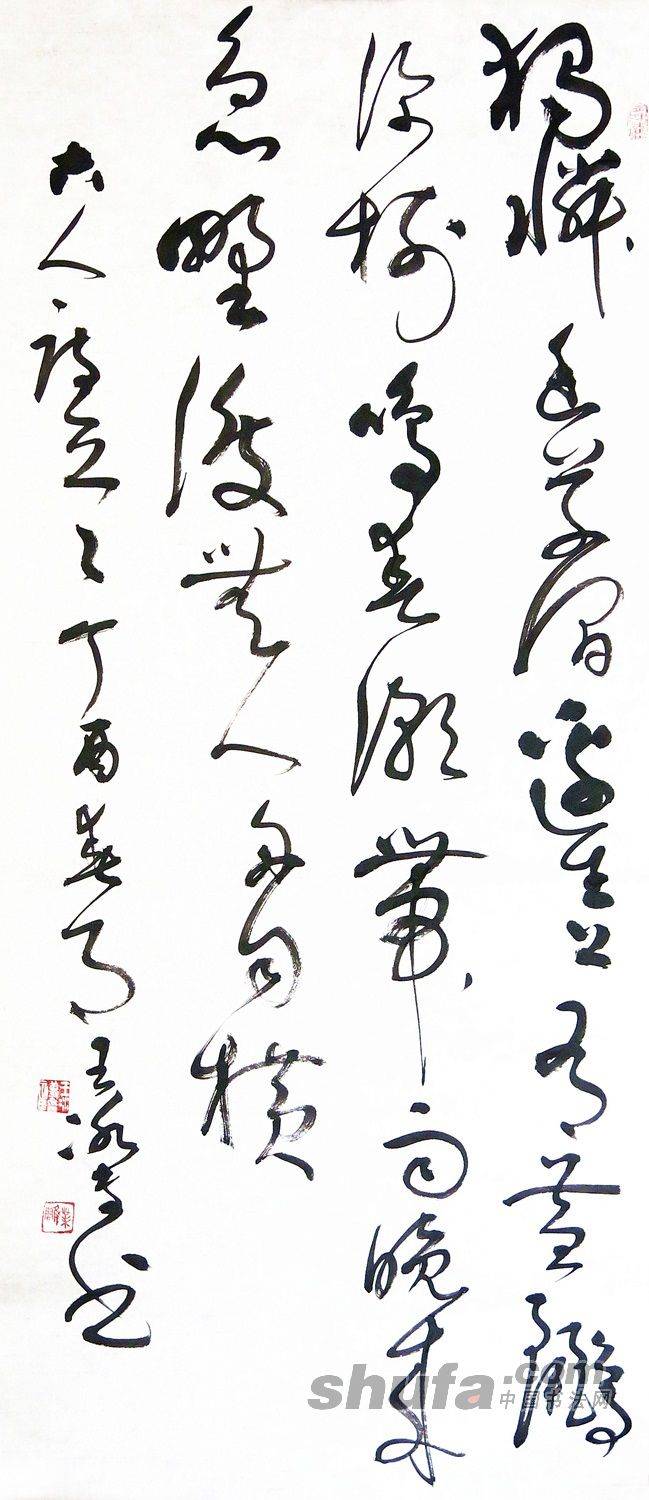 獨憐幽草澗邊生上有黃鸝
深樹鳴春潮帶雨晚來
急野渡無人舟自橫
古人詩 丁酉春月王 書
shufa.com
中国书法网